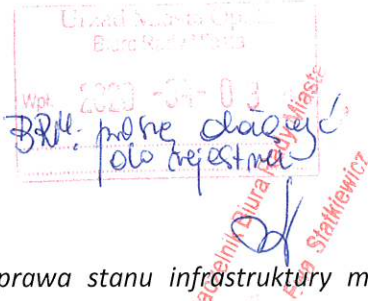 Urząd Miasta Opola
Biuro Rady Miasta
Wpł. 2020 -04- 03
BRM: proszę dołączyć
do rejestru
Naczelnik Biura Rady Miasta
Statkiewicz
prawa stanu infrastruktury m